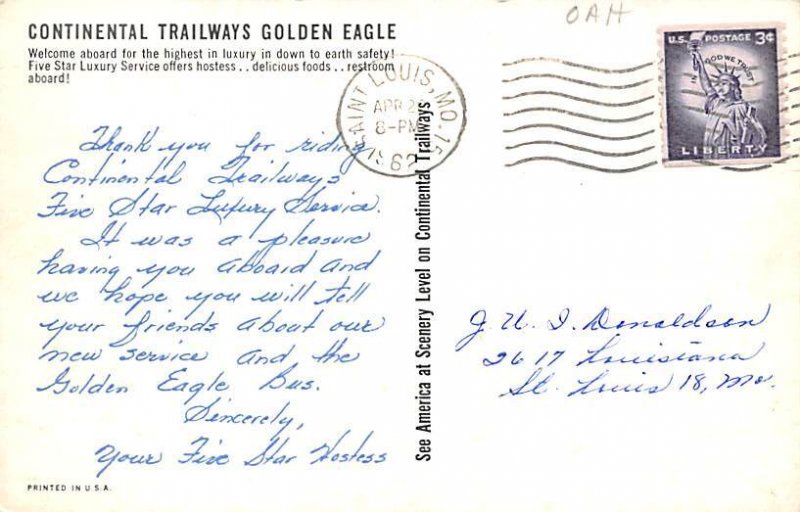 CONTINENTAL TRAILWAYS GOLDEN EAGLE
Welcome aboard for the highest in luxury in down to earth safety!
Five Star Luxury Service offers hostess . . delicious foods . . restroom
aboard!
OAH
SAINT LOUIS, MO.
APR 2
8-PM
1962
U.S. POSTAGE 3¢
IN GOD WE TRUST
LIBERTY
Thank you for riding
Continental Trailways
Five Star Luxury Service.
It was a pleasure
having you aboard and
we hope you will tell
your friends about our
new service and the
Golden Eagle Bus.
Sincerely,
Your Five Star Hostess
See America at Scenery Level on Continental Trailways
J. U. I. Donaldson
2617 Louisiana
St. Louis 18, Mo.
PRINTED IN U.S.A.